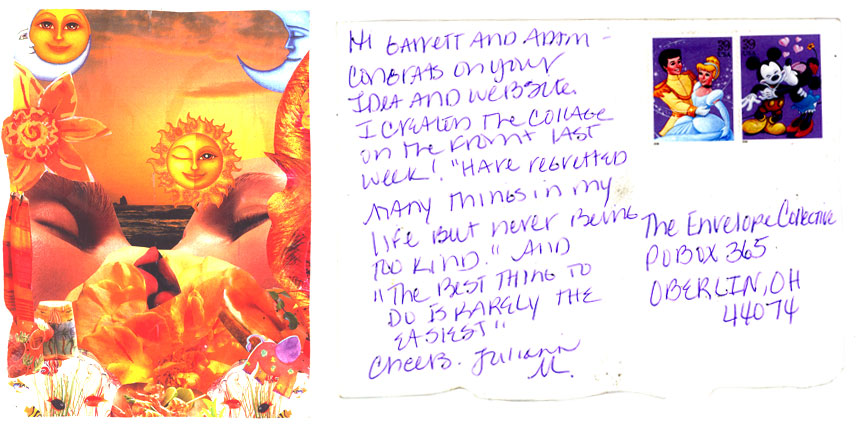 Hi Garrett and Adam -
Congrats on your
Idea and website.
I created the collage
on the front last
week! "Have regretted
many things in my
life but never being
too kind." And
"The best thing to
do is rarely the
easiest"
Cheers. Juliann
M.
39
39
The Envelope Collective
PO Box 365
Oberlin, OH
44074